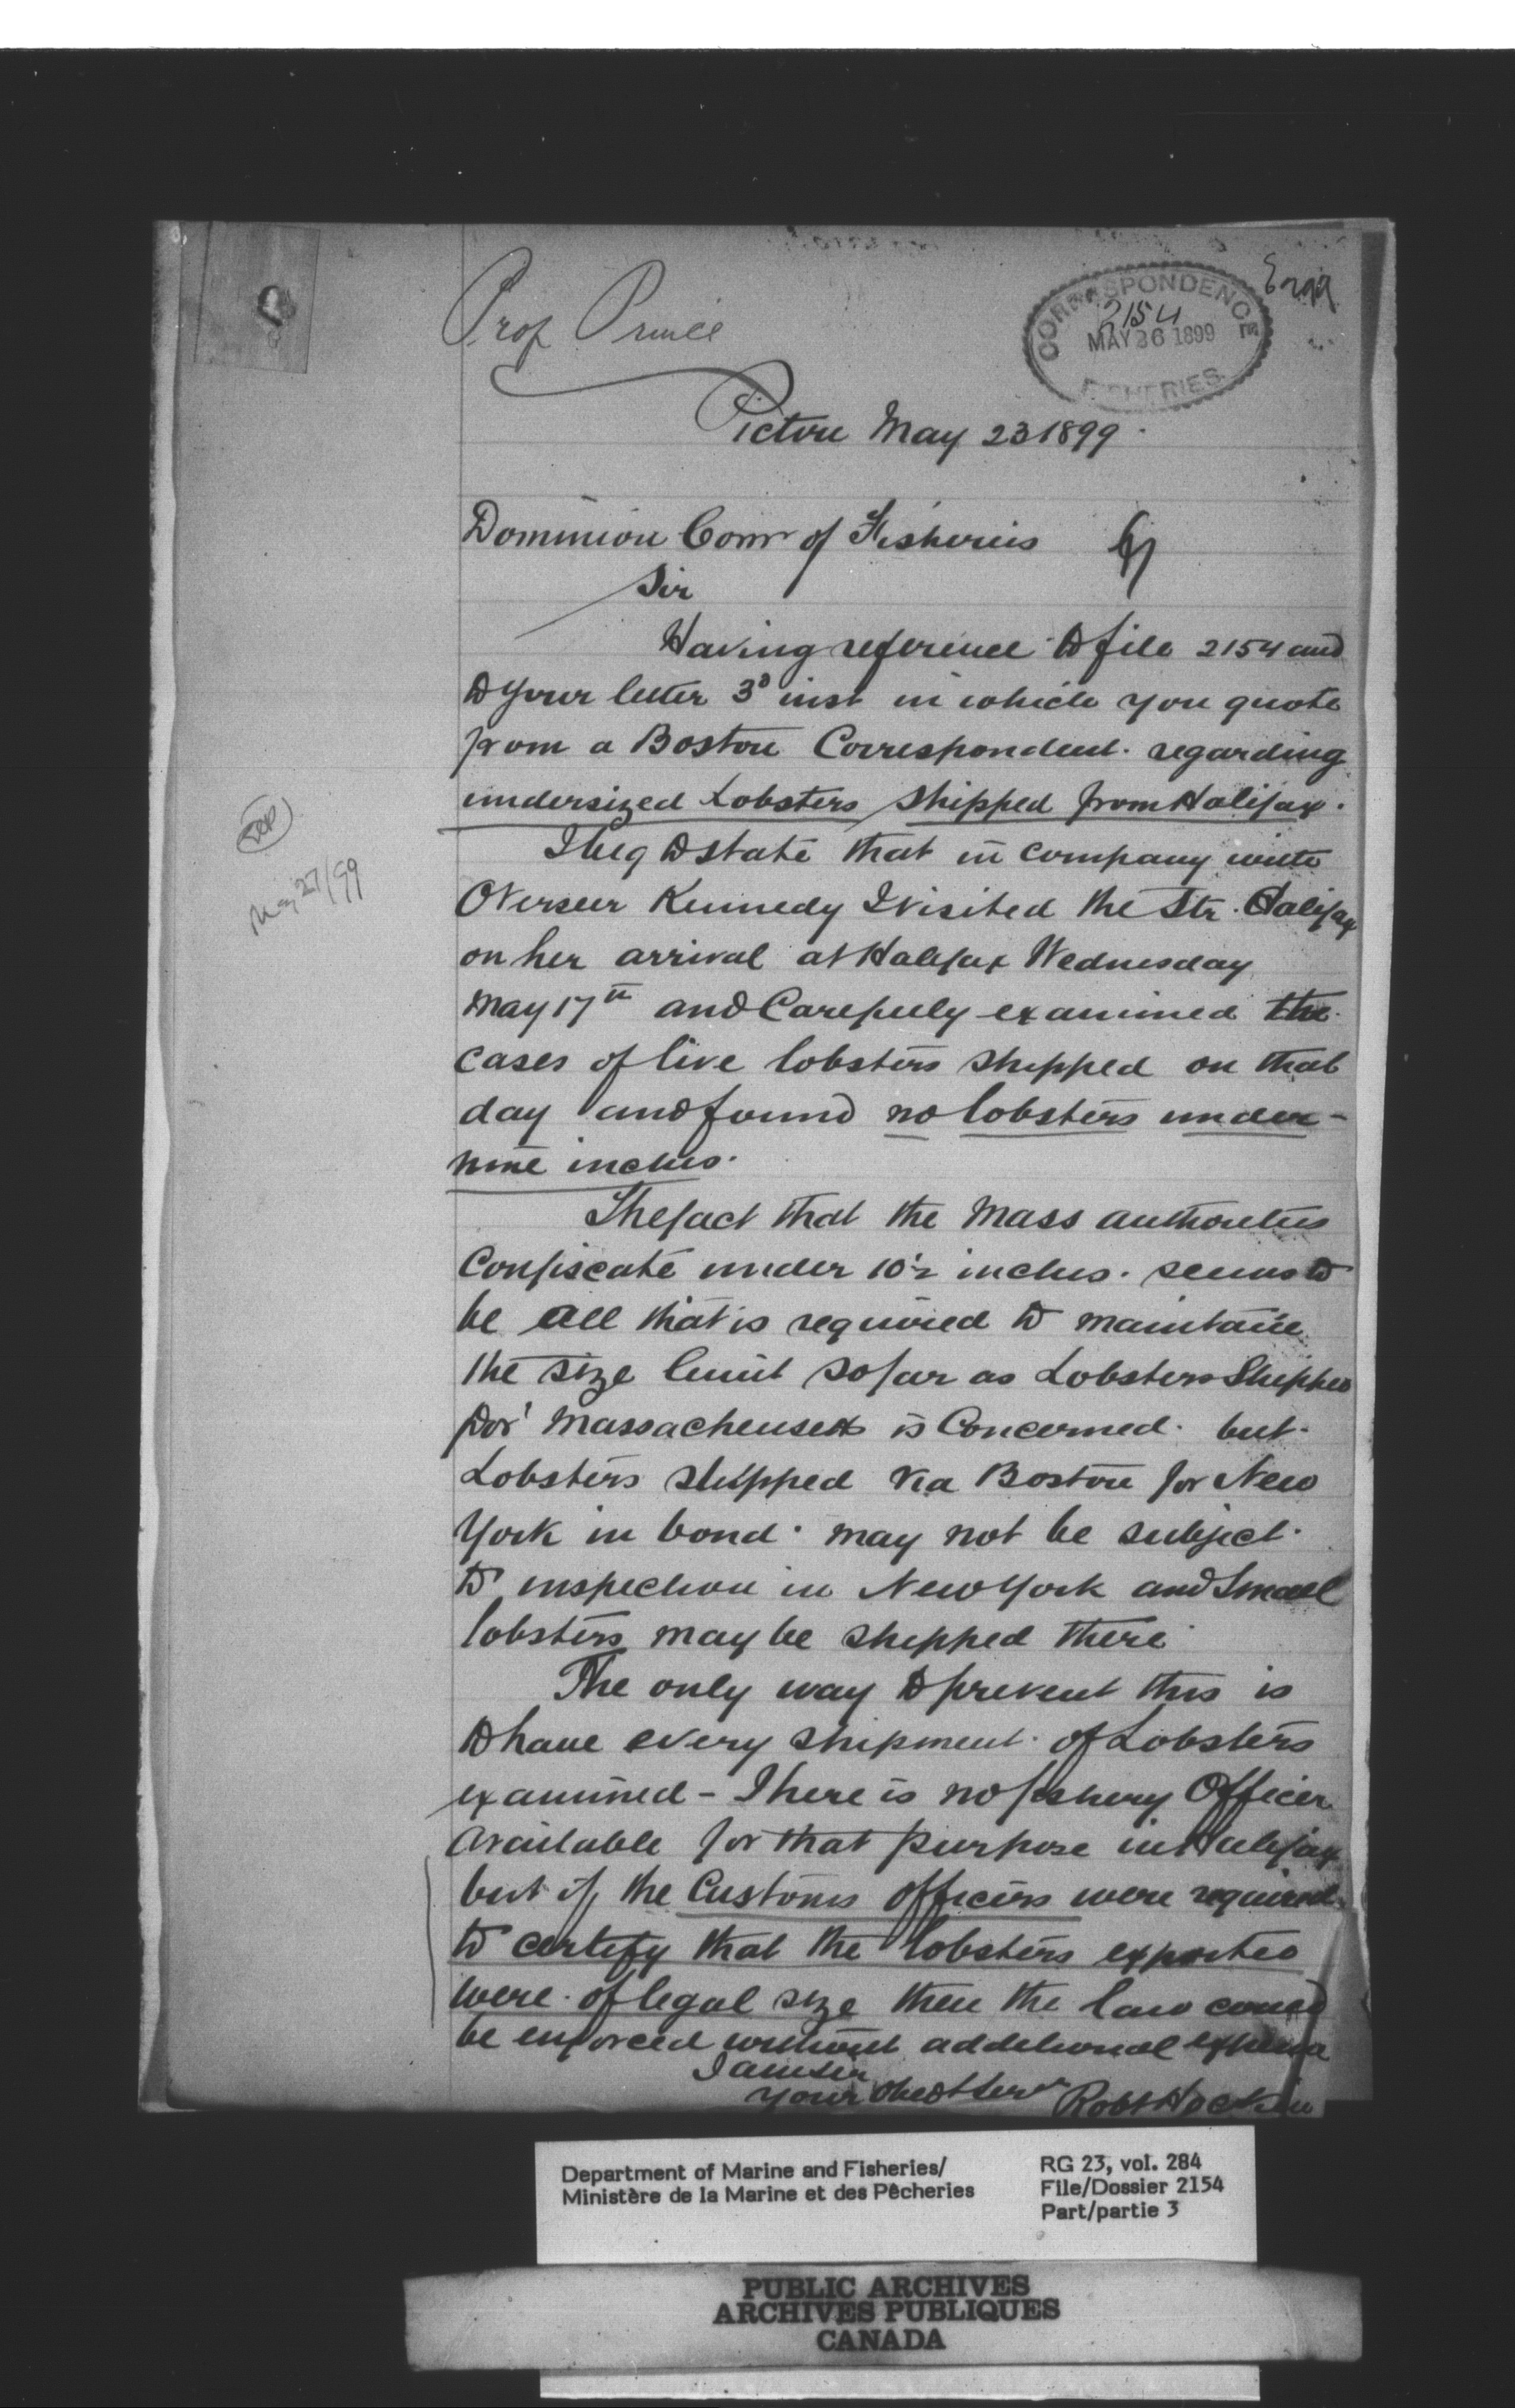 Prof Prince
CORRESPONDENCE
2154
MAY 26 1899
FISHERIES
Pictou May 23 1899
Dominion Comr of Fisheries
Sir
Having reference to file 2154 and
to your letter 3d inst in which you quote
from a Boston Correspondent. regarding
undersized Lobsters shipped from Halifax.
I beg to state that in company with
Overseer Kennedy I visited the Str. Halifax
on her arrival at Halifax Wednesday
May 17th and Carefuly examined the
cases of live lobsters shipped on that
day and found no lobsters under-
nine inches.
The fact that the Mass authorities
Confiscate under 10½ inches. seems to
be all that is required to maintain
the size limit so far as Lobsters Shipped
for Massachusetts is Concerned. but
Lobsters shipped via Boston for New
York in bond. may not be subject
to inspection in New York and Small
lobsters may be shipped there
The only way to prevent this is
to have every shipment of Lobsters
examined - There is no fishery Officer
available for that purpose in Halifax
but if the Customs officers were required
to certify that the lobsters exported
were of legal size then the law could
be enforced without additional expense
I am Sir
your Obedt Servt Robt Hockin
May 27/99
Department of Marine and Fisheries/
Ministère de la Marine et des Pêcheries
RG 23, vol. 284
File/Dossier 2154
Part/partie 3
PUBLIC ARCHIVES
ARCHIVES PUBLIQUES
CANADA